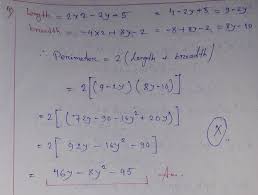 Length = 2×2 - 2y + 5 = 4 - 2y + 5 = 9 - 2y
breadth = -4×2 + 8y - 2 = -8 + 8y - 2 = 8y - 10
∴ Perimeter = 2 (length + breadth)
= 2[(9-2y) (8y-10)]
= 2[(72y - 90 - 16y² + 20y)]
= 2[92y - 16y² - 90]
= 46y - 8y² - 45 Ans.